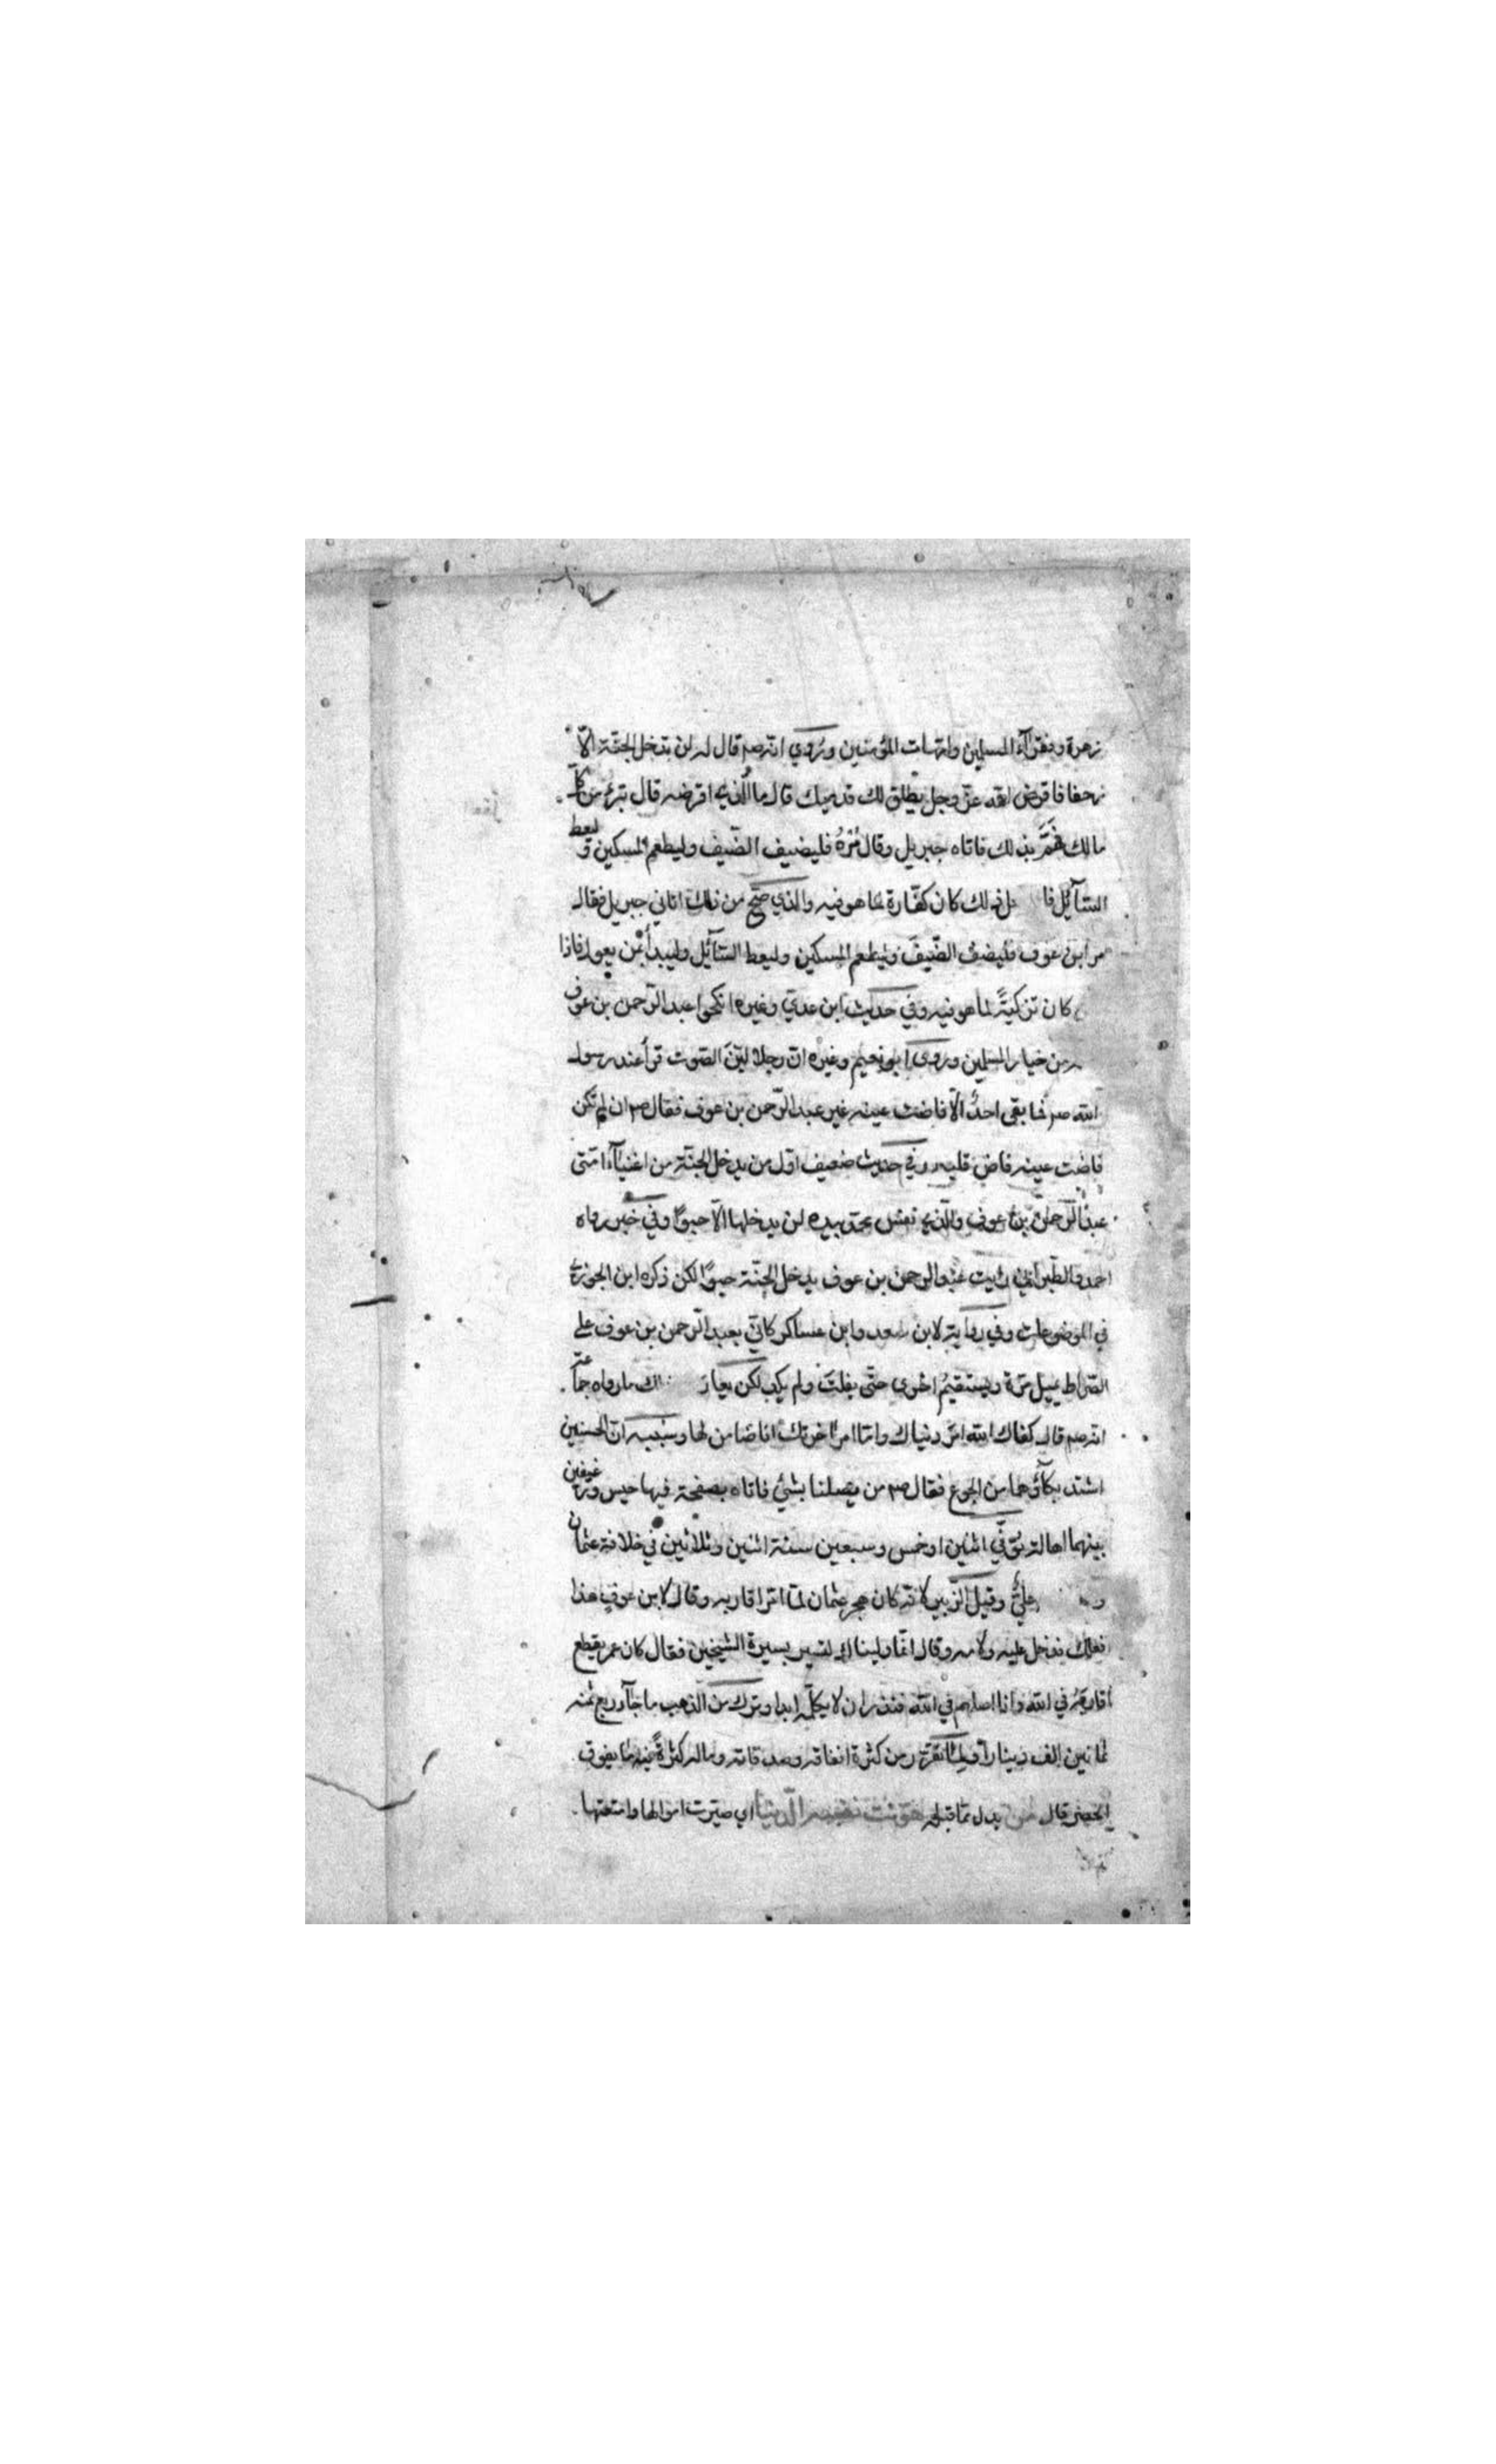 زهرة وفقرآء المسلمين وامهات المؤمنين ورُوي انه صم قال له لن تدخل الجنة الّا
زحفا فاقرض الله عزّ وجل يطلق لك قدميك قال ما الذي اقرضه قال تبرء من كل
مالك فهَمَّ بذلك فاتاه جبريل وقال مُرْهُ فليضيف الضّيف وليطعم المسكين وليعط
السّآئل فا ذلك كان كفّارة لما هو فيه والذي صحّ من ذلك اتاني جبريل فقال
مر ابن عوف فليضف الضّيفَ وليطعم المسكين وليعط السّآئل وليبدأ بمن يعول فاذا
كان تزكيةً لما هو فيه وفي حديث ابن عدي وغيره انكحوا عبد الرّحمن بن عوف
من خيار المسلمين وروى ابو نعيم وغيره انّ رجلا ليّنَ الصّوت قرأ عند رسول
الله صم فما بقى احدٌ الّا فاضت عينه غير عبد الرّحمن بن عوف فقال صم ان لم تكن
فاضت عينه فاض قلبه وفي حديث ضعيف اوّل من يدخل الجنّة من اغنيآء امّتى
عبد الرّحمن بن عوف والّذي نفس محمد بيده لن يدخلها الّا حبوًا وفي خبر رواه
احمد والطبرآني رئيت عبد الرحمن بن عوف يدخل الجنّة حبوًا لكن ذكره ابن الجوزي
في الموضوعات وفي رواية لابن سعد وابن عساكر كانّي بعبد الرّحمن بن عوف على
الصّراط يميل مرّة ويستقيمُ اخرى حتّى يفلتَ ولم يكد لكن ما رواه جماعة
انه صم قال كفاك الله امر دنياك وامّا امر اخرتك فانا ضامن لها وسببه انّ الحسنين
اشتد بكآؤهما من الجوع فقال صم من يصلنا بشئ فاتاه بصفحة فيها حيس ورغيفين
بينهما اهالة توّفّي اثنين او خمس وسبعين سنة اثنين وثلاثين في خلافة عثمان
علي وقيل الزّبير لانّه كان هجر عثمان لمّا اثرا قاربه وقال لابن عوفٍ هذا
فعلك فدخل عليه ولامه وقال انّما وليناك لتسير بسيرة الشيخين فقال كان عمر يقطع
اقاربَهُ في الله وانا اصلهم في الله فنذر ان لا يكلّمه ابدا وترك من الذّهب ما جآء ربع ثمنه
ثمانين الف دينارا من كثرة انفاقه وصدقاته وماله كثرةً ما يفوق
الحصر قال بدل ممّا قبله هوّنت الدّنيا اي صيّرت اموالها وامتعتها